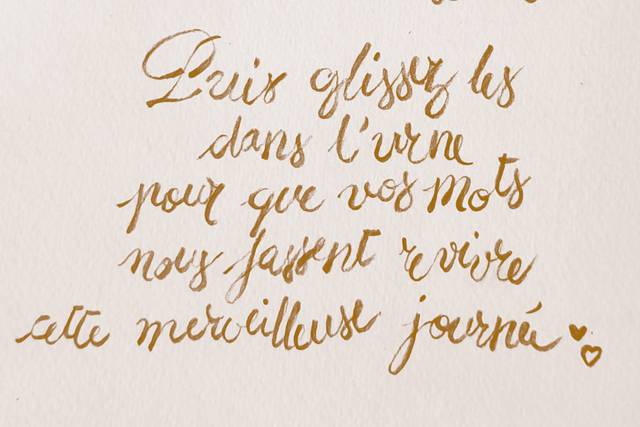 Puis glissez les
dans l'urne
pour que vos mots
nous fassent revivre
cette merveilleuse journée